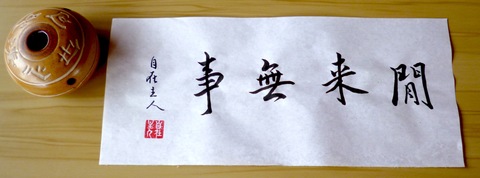 閒来無事
自在主人